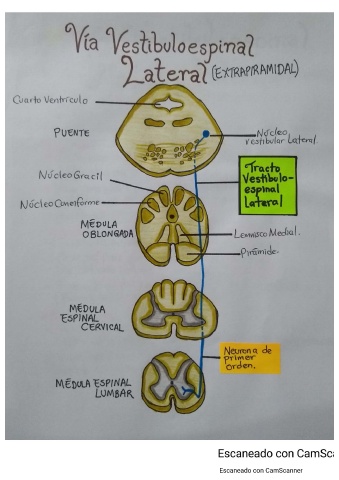 Vía Vestibuloespinal
Lateral (EXTRAPIRAMIDAL)
Cuarto Ventrículo
PUENTE
Núcleo
vestibular Lateral
Tracto
Vestíbulo-
espinal
lateral
Núcleo Gracil
Núcleo Cuneiforme
MÉDULA
OBLONGADA
Lemnisco Medial.
Pirámide
MÉDULA
ESPINAL
CERVICAL
Neurona de
primer
orden.
MÉDULA ESPINAL
LUMBAR
Escaneado con CamSca
Escaneado con CamScanner